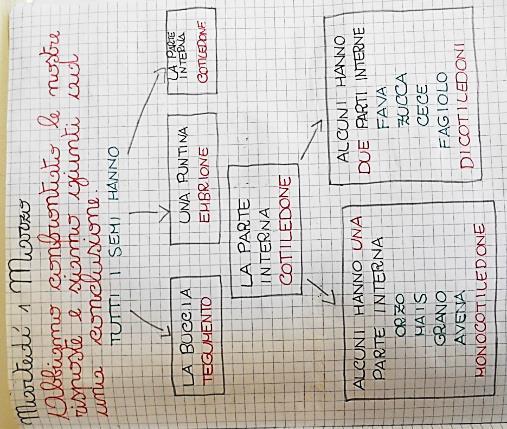 Martedì 1 Marzo
Abbiamo confrontato le nostre
risposte e siamo giunti sul
una conclusione.
TUTTI I SEMI HANNO
LA BUCCIA
TEGUMENTO
UNA PUNTINA
EMBRIONE
LA PARTE
INTERNA
COTILEDONE
LA PARTE
INTERNA
COTILEDONE
ALCUNI HANNO UNA
PARTE INTERNA
ORZO
MAIS
GRANO
AVENA
MONOCOTILEDONE
ALCUNI HANNO
DUE PARTI INTERNE
FAVA
ZUCCA
CECE
FAGIOLO
DICOTILEDONI